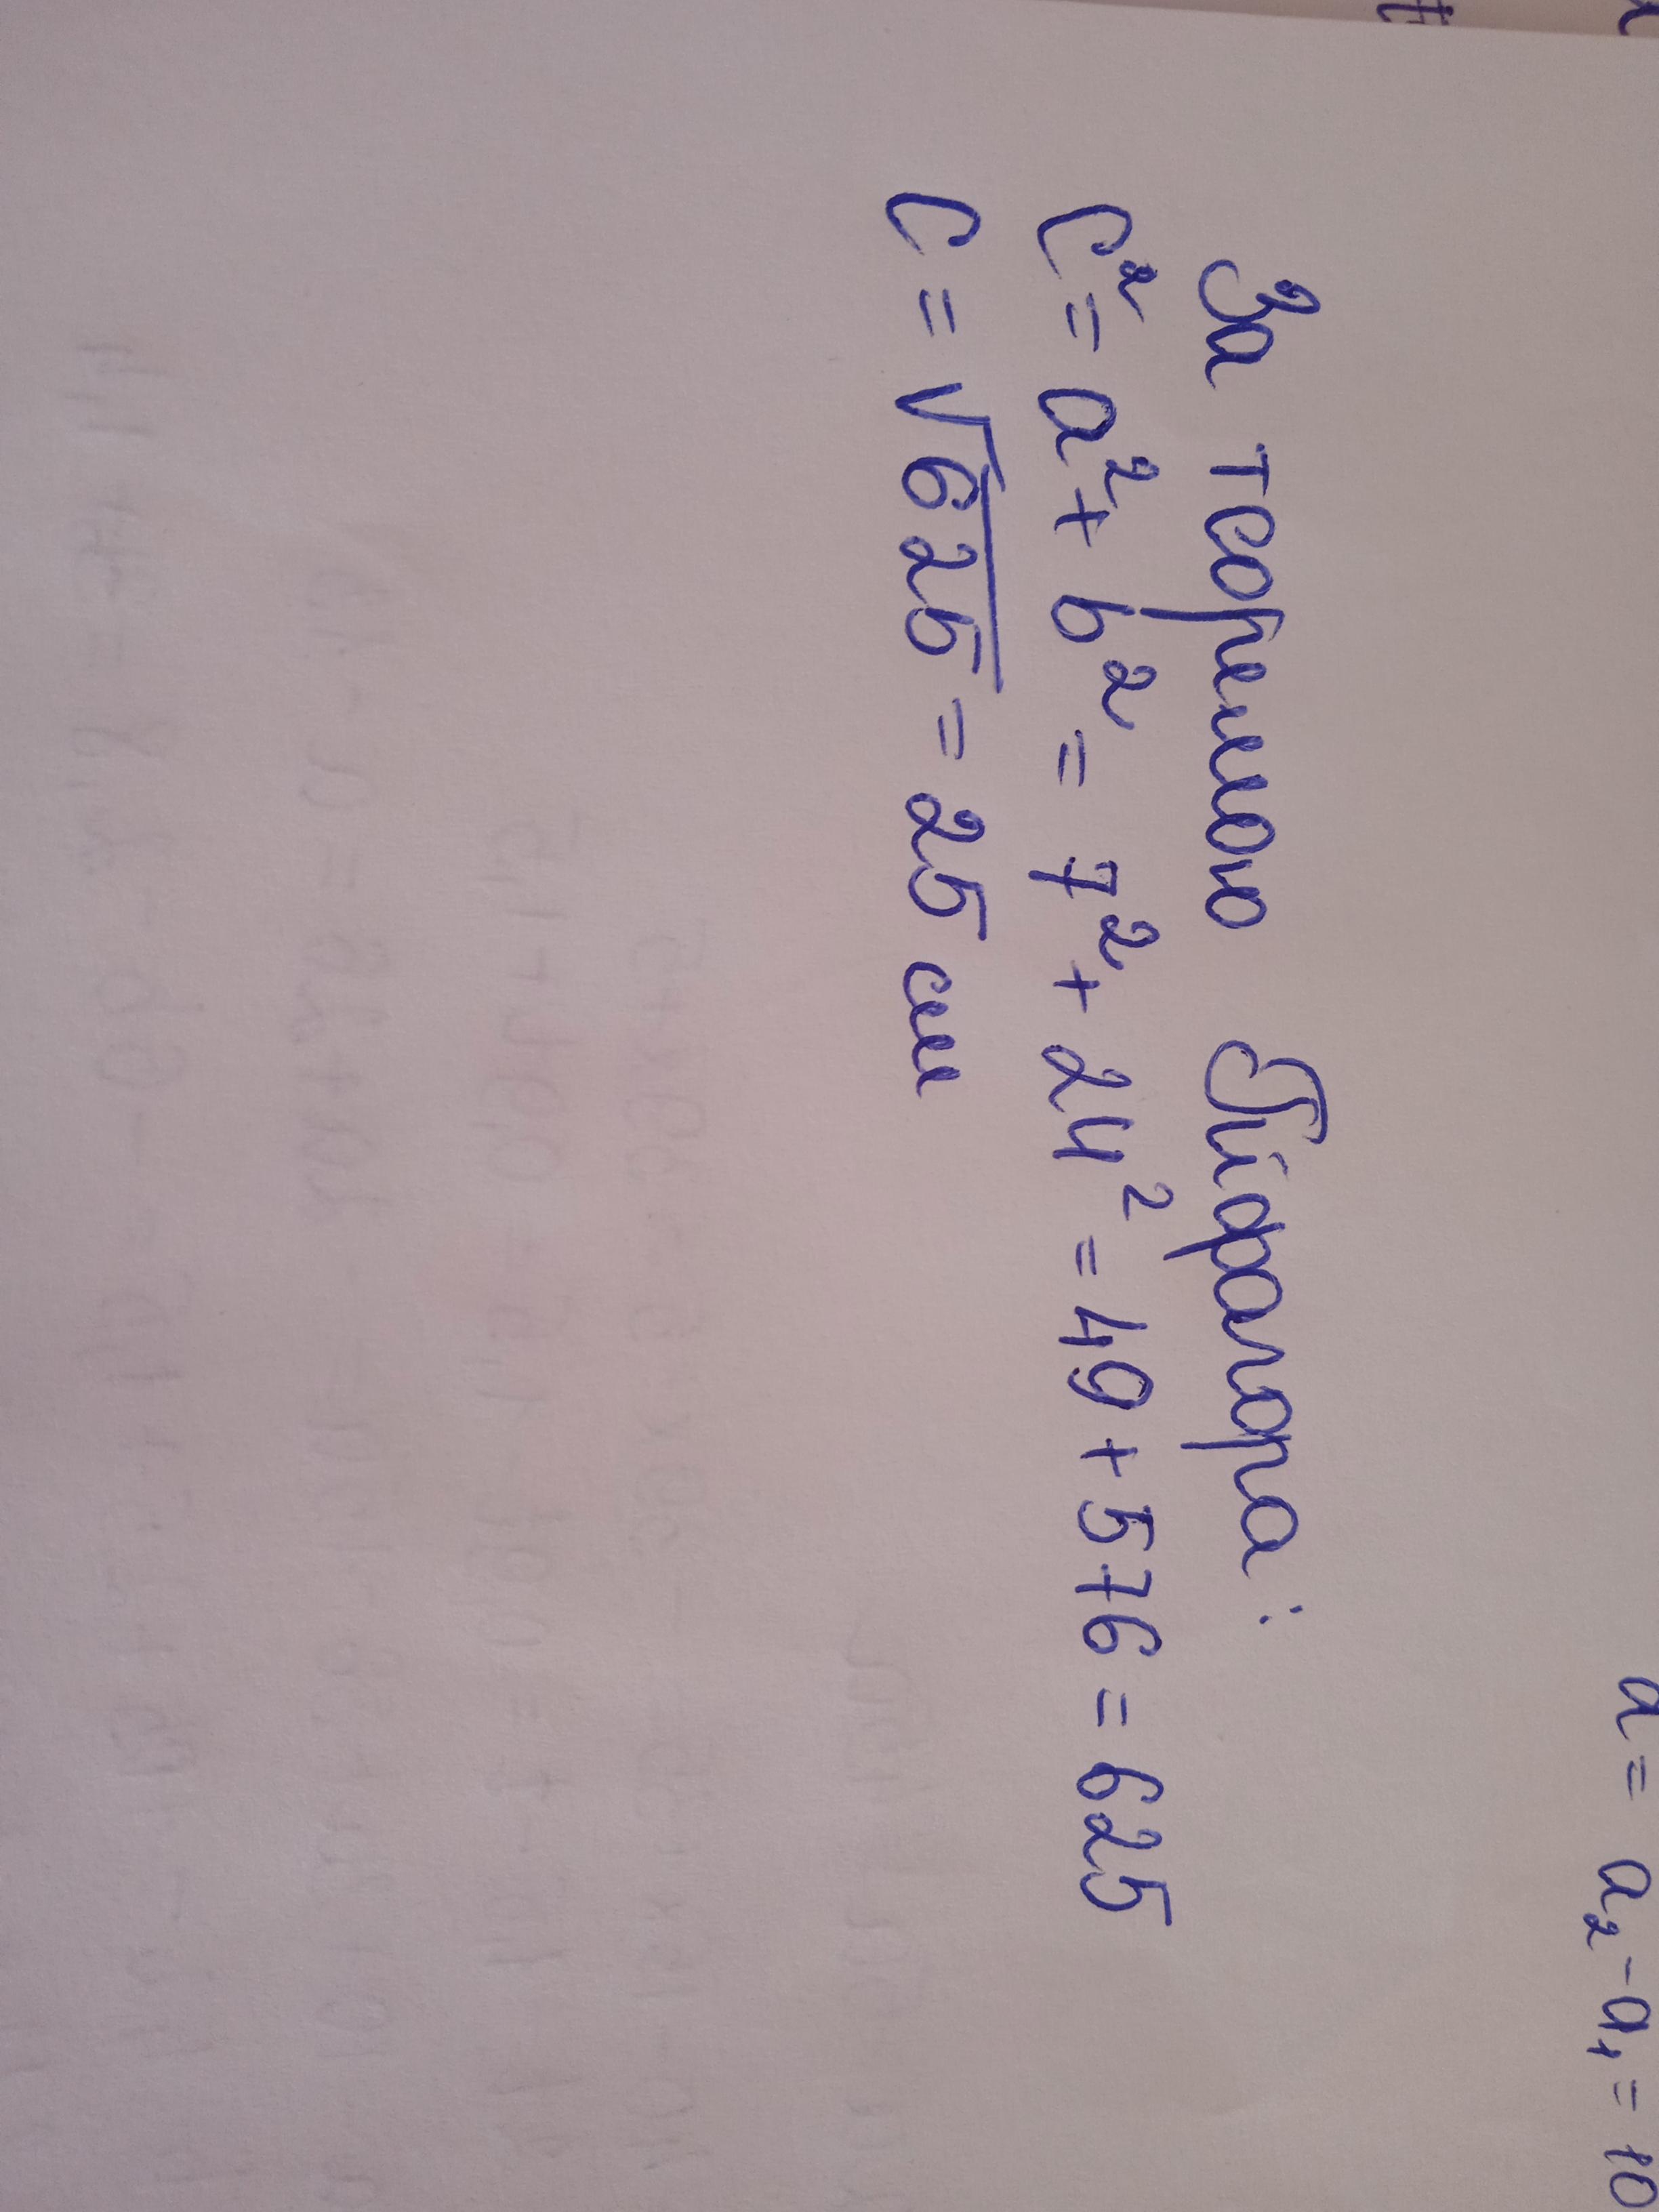 a = a₂ - a₁ = 10
За теоремою Піфагора:
c² = a² + b² = 7² + 24² = 49 + 576 = 625
c = √625 = 25 см